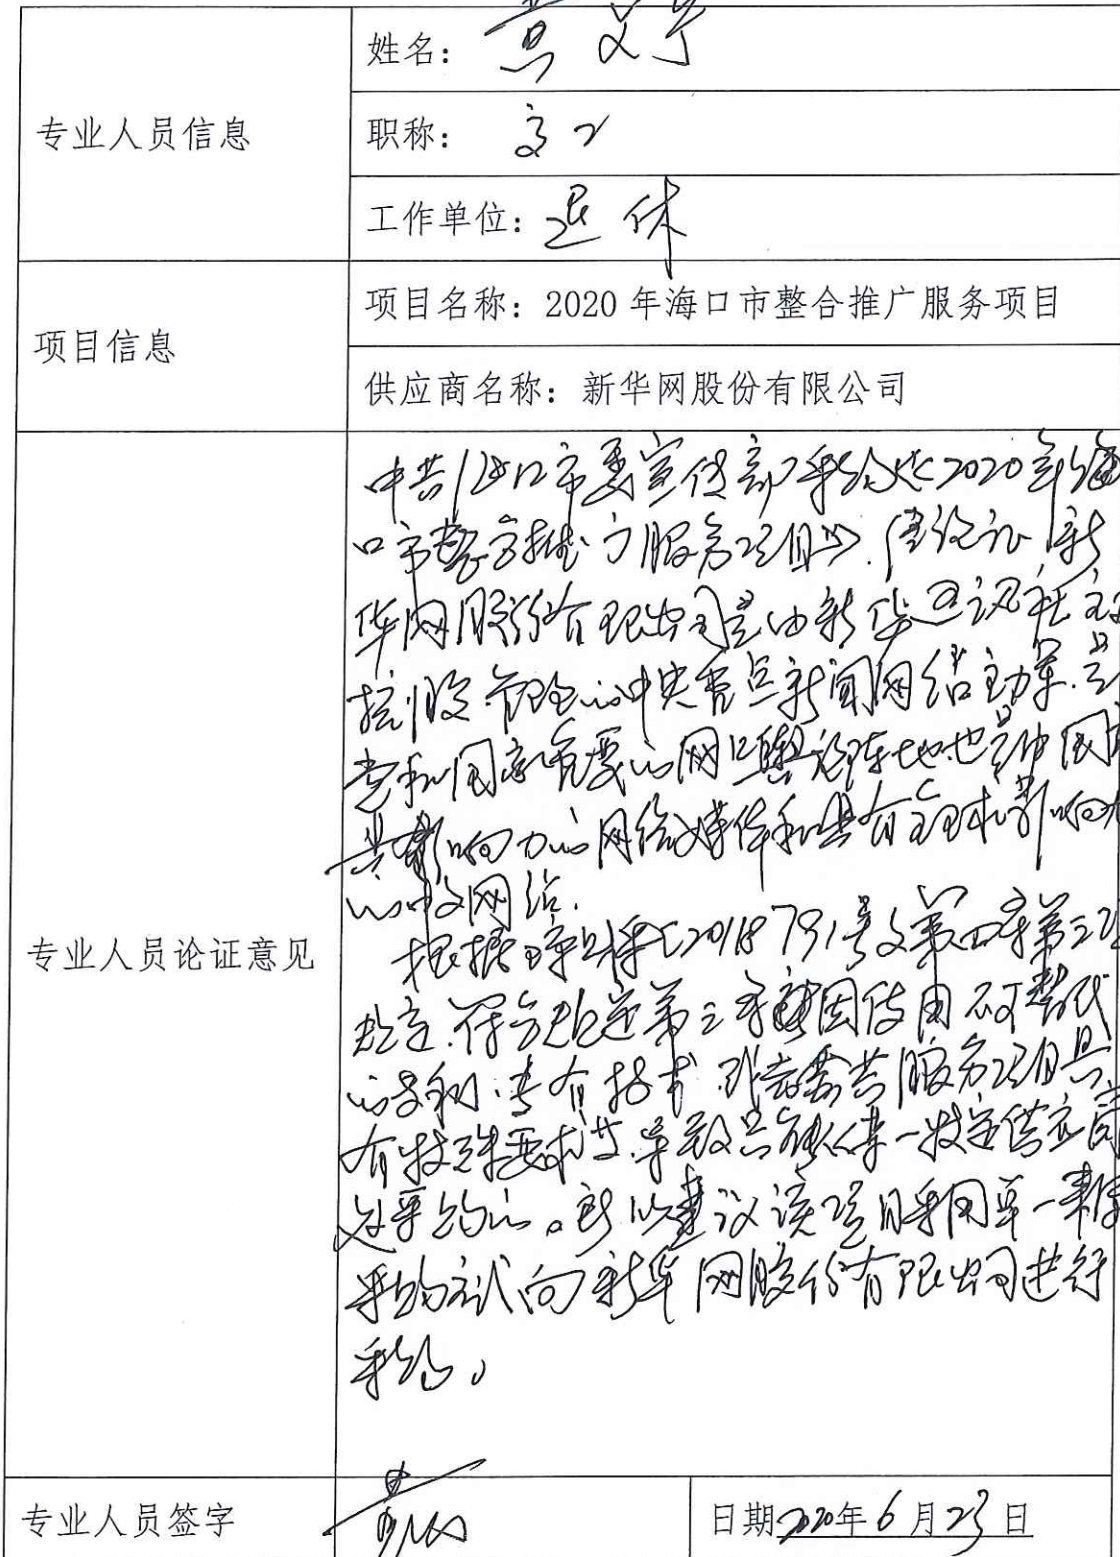 姓名：黄
专业人员信息
职称：高工
工作单位：退休
项目信息
项目名称：2020 年海口市整合推广服务项目
供应商名称：新华网股份有限公司
专业人员论证意见
中共海口市委宣传部采购《2020年海
口市整合推广服务项目》.经论证新
华网股份有限公司是由新华通讯社主
控股.管理的中央重点新闻网络.是
党和国家重要的网上舆论阵地.也是中国
具影响力的网络媒体和具有全球影响
的中文网络.
根据琼[2018]791号文第四条第三
规定.符合规定第三因使用不可替代
的专利.专有技术.或者公共服务项目具
有特殊要求.导致只能从某一特定供应商
处采购的。所以建议该项目采用单一来源
采购方式向新华网股份有限公司进行
采购。
专业人员签字 黄
日期2020年6月23日